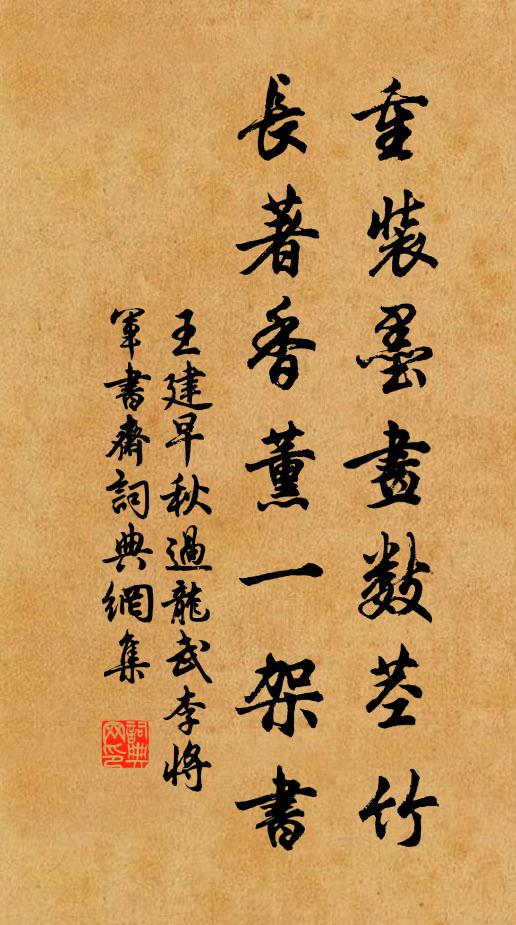 重裝墨畫數莖竹
長著香薰一架書
王建早秋過龍武李將
軍書齋詞典網集
詞典
网印